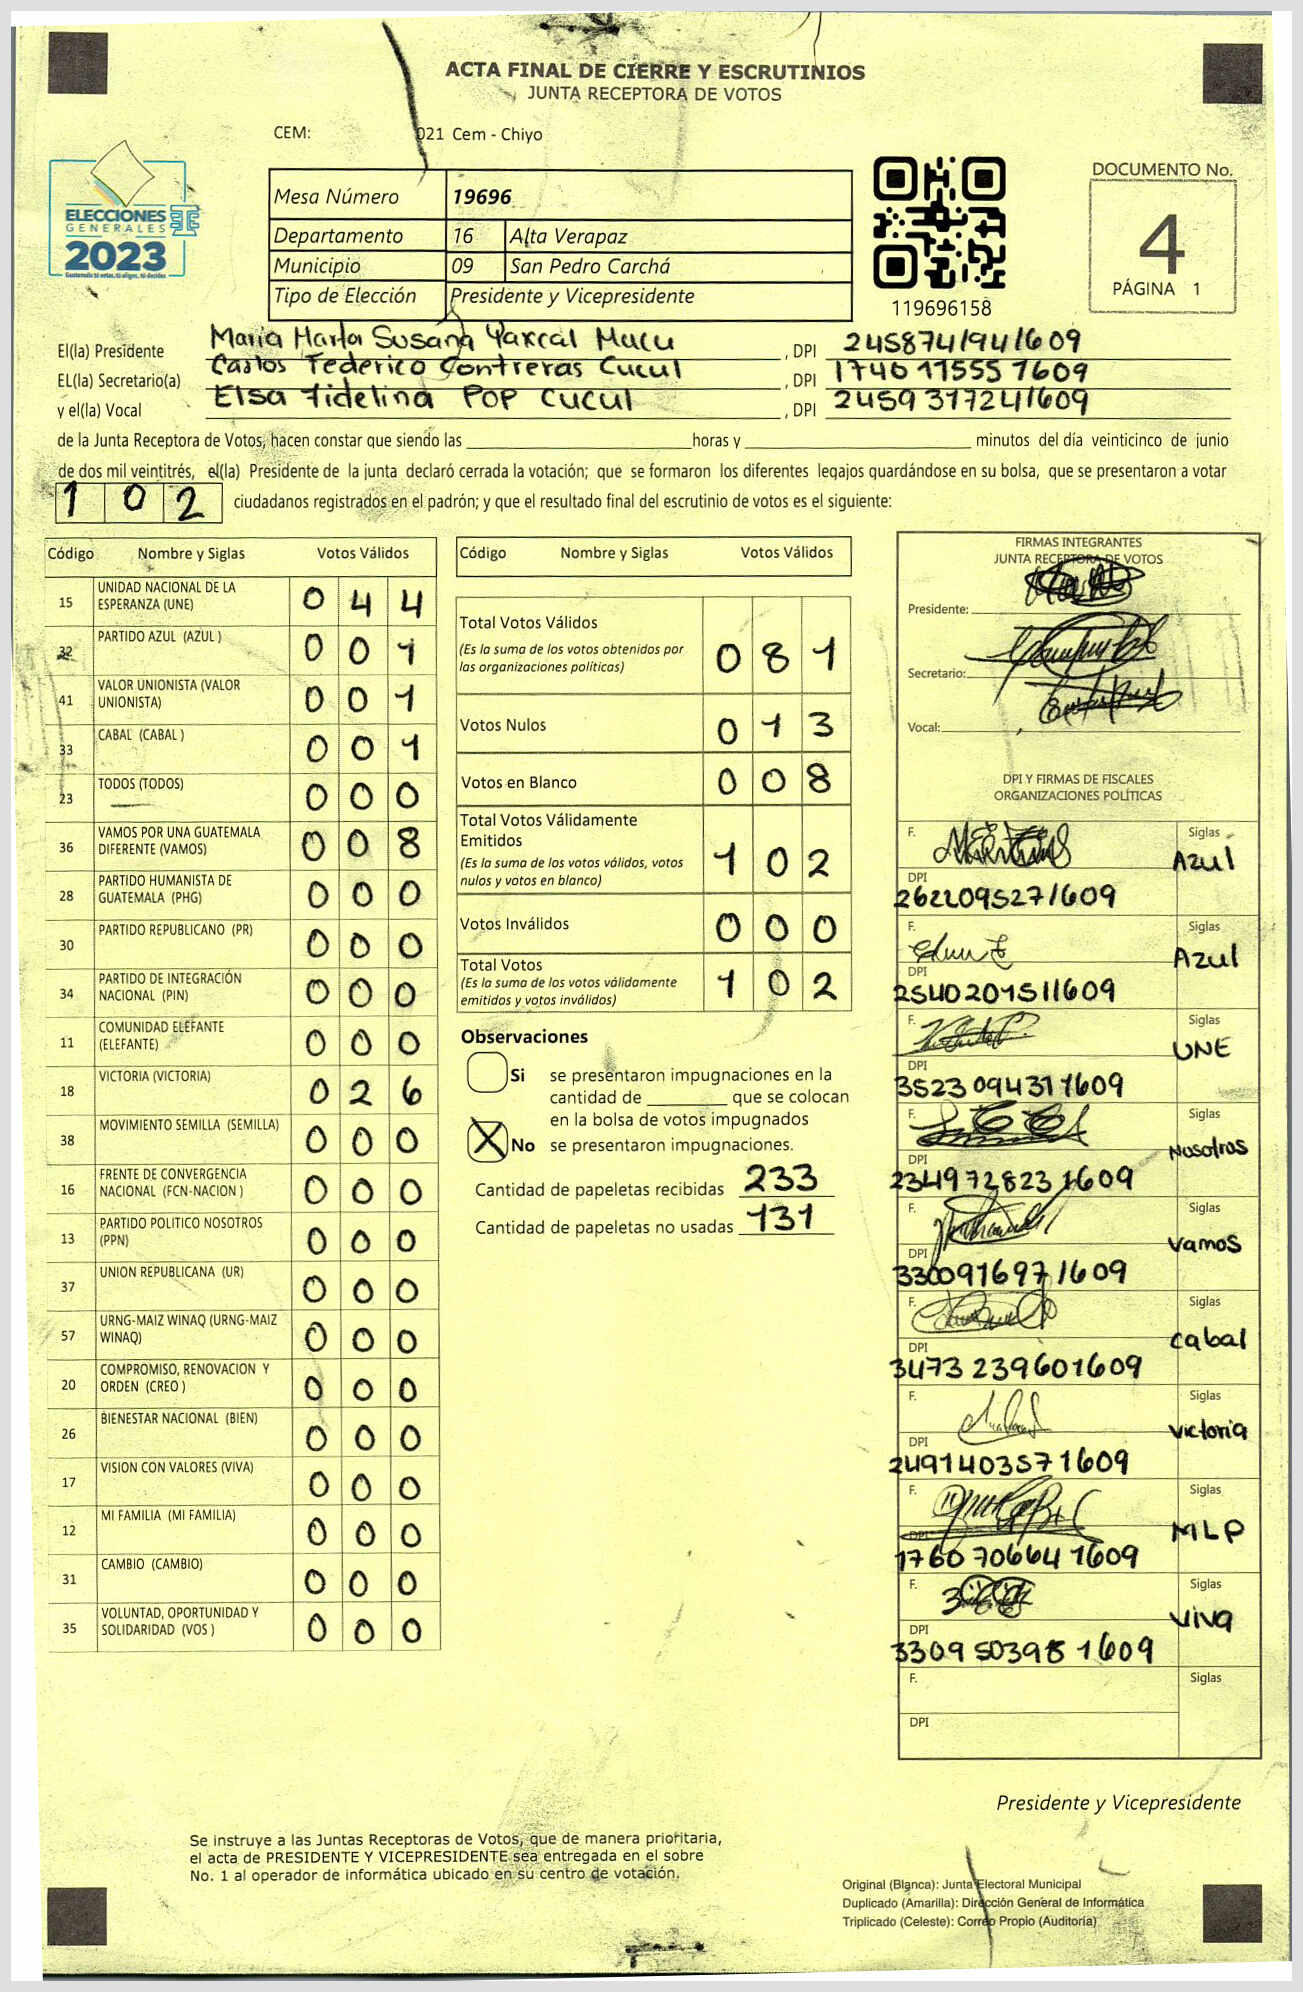 ACTA FINAL DE CIERRE Y ESCRUTINIOS
JUNTA RECEPTORA DE VOTOS
CEM: 021 Cem - Chiyo
ELECCIONES
GENERALES
2023
Guatemala tú votas, tú eliges, tú decides
Mesa Número 19696
Departamento 16 Alta Verapaz
Municipio 09 San Pedro Carchá
Tipo de Elección Presidente y Vicepresidente
119696158
DOCUMENTO No.
4
PÁGINA 1
El(la) Presidente Maria Marta Susana Yaxcal Mucu , DPI 2458741941609
EL(la) Secretario(a) Carlos Federico Contreras Cucul , DPI 1740 11555 1609
y el(la) Vocal Elsa Fidelina POP CUCUL , DPI 2459317241609
de la Junta Receptora de Votos, hacen constar que siendo las horas y minutos del día veinticinco de junio
de dos mil veintitrés, el(la) Presidente de la junta declaró cerrada la votación; que se formaron los diferentes legajos guardándose en su bolsa, que se presentaron a votar
1 0 2 ciudadanos registrados en el padrón; y que el resultado final del escrutinio de votos es el siguiente:
Código Nombre y Siglas Votos Válidos
15 UNIDAD NACIONAL DE LA ESPERANZA (UNE) 0 4 4
32 PARTIDO AZUL (AZUL ) 0 0 1
41 VALOR UNIONISTA (VALOR UNIONISTA) 0 0 1
33 CABAL (CABAL ) 0 0 1
23 TODOS (TODOS) 0 0 0
36 VAMOS POR UNA GUATEMALA DIFERENTE (VAMOS) 0 0 8
28 PARTIDO HUMANISTA DE GUATEMALA (PHG) 0 0 0
30 PARTIDO REPUBLICANO (PR) 0 0 0
34 PARTIDO DE INTEGRACIÓN NACIONAL (PIN) 0 0 0
11 COMUNIDAD ELEFANTE (ELEFANTE) 0 0 0
18 VICTORIA (VICTORIA) 0 2 6
38 MOVIMIENTO SEMILLA (SEMILLA) 0 0 0
16 FRENTE DE CONVERGENCIA NACIONAL (FCN-NACION ) 0 0 0
13 PARTIDO POLITICO NOSOTROS (PPN) 0 0 0
37 UNION REPUBLICANA (UR) 0 0 0
57 URNG-MAIZ WINAQ (URNG-MAIZ WINAQ) 0 0 0
20 COMPROMISO, RENOVACION Y ORDEN (CREO ) 0 0 0
26 BIENESTAR NACIONAL (BIEN) 0 0 0
17 VISION CON VALORES (VIVA) 0 0 0
12 MI FAMILIA (MI FAMILIA) 0 0 0
31 CAMBIO (CAMBIO) 0 0 0
35 VOLUNTAD, OPORTUNIDAD Y SOLIDARIDAD (VOS ) 0 0 0
Código Nombre y Siglas Votos Válidos
Total Votos Válidos 0 8 1
(Es la suma de los votos obtenidos por
las organizaciones políticas)
Votos Nulos 0 1 3
Votos en Blanco 0 0 8
Total Votos Válidamente
Emitidos 1 0 2
(Es la suma de los votos válidos, votos
nulos y votos en blanco)
Votos Inválidos 0 0 0
Total Votos 1 0 2
(Es la suma de los votos válidamente
emitidos y votos inválidos)
Observaciones
Si se presentaron impugnaciones en la
cantidad de que se colocan
en la bolsa de votos impugnados
X No se presentaron impugnaciones.
Cantidad de papeletas recibidas 233
Cantidad de papeletas no usadas 131
FIRMAS INTEGRANTES
JUNTA RECEPTORA DE VOTOS
Presidente:
Secretario:
Vocal:
DPI Y FIRMAS DE FISCALES
ORGANIZACIONES POLÍTICAS
F. Siglas Azul
DPI 2622095271609
F. Siglas Azul
DPI 2540201511609
F. Siglas UNE
DPI 3523 094311609
F. Siglas Nosotros
DPI 2349728231609
F. Siglas Vamos
DPI 3300916971609
F. Siglas Cabal
DPI 3473 239601609
F. Siglas Victoria
DPI 2491403571609
F. Siglas MLP
DPI 1760 70664 1609
F. Siglas Viva
DPI 3309 50398 1609
F. Siglas
DPI
Presidente y Vicepresidente
Se instruye a las Juntas Receptoras de Votos, que de manera prioritaria,
el acta de PRESIDENTE Y VICEPRESIDENTE sea entregada en el sobre
No. 1 al operador de informática ubicado en su centro de votación.
Original (Blanca): Junta Electoral Municipal
Duplicado (Amarilla): Dirección General de Informática
Triplicado (Celeste): Correo Propio (Auditoría)